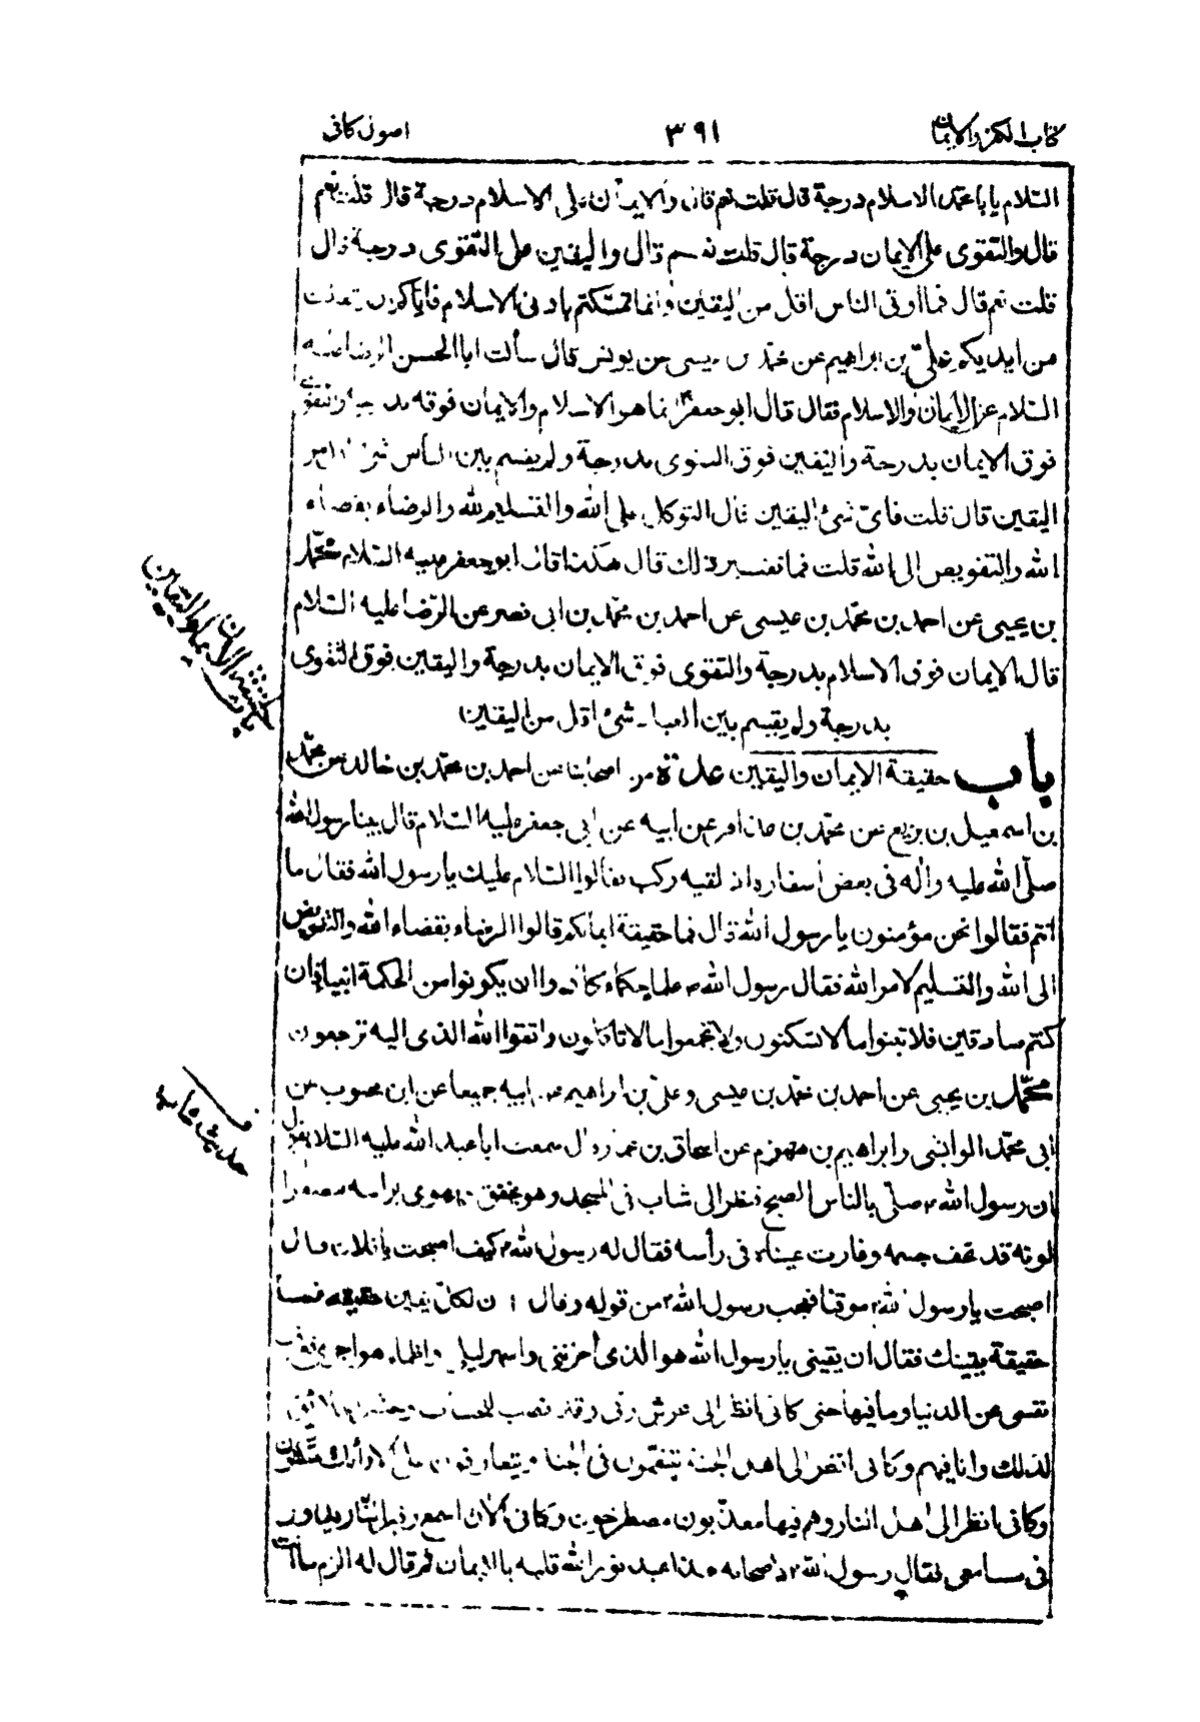 كتاب الكفر والايمان
٣٩١
اصول كافى
السّلام يا با محمّد الاسلام درجة قال قلت نعم قال والايمان على الاسلام درجة قال قلت نعم
قال والتقوى على الايمان درجة قال قلت نعم قال واليقين على التقوى درجة قال
قلت نعم قال فما اوتى الناس اقل من اليقين وانما تمسّكتم بادنى الاسلام فاياكم ان يتفلت
من ايديكم علىّ بن ابراهيم عن محمّد بن عيسى عن يونس قال سألت ابا الحسن الرضا عليه
السّلام عن الايمان والاسلام فقال قال ابو جعفر انما هو الاسلام والايمان فوقه بدرجة والتقوى
فوق الايمان بدرجة واليقين فوق التقوى بدرجة ولم يقسم بين الناس شئ اقل من
اليقين قال قلت فاىّ شئ اليقين قال التوكل على الله والتسليم لله والرضاء بقضاء
الله والتفويض الى الله قلت فما تفسير ذلك قال هكذا قال ابو جعفر عليه السّلام محمّد
بن يحيى عن احمد بن محمّد بن عيسى عن احمد بن محمّد بن ابى نصر عن الرّضا عليه السّلام
قال الايمان فوق الاسلام بدرجة والتقوى فوق الايمان بدرجة واليقين فوق التقوى
بدرجة ولم يقسم بين العباد شئ اقل من اليقين
باب حقيقة الايمان واليقين عدّة من اصحابنا عن احمد بن محمّد بن خالد عن محمّد
بن اسمعيل بن بزيع عن محمّد بن عذافر عن ابيه عن ابى جعفر عليه السّلام قال بينا رسول الله
صلّى الله عليه واله فى بعض اسفاره اذ لقيه ركب فقالوا السّلام عليك يا رسول الله فقال ما
انتم فقالوا نحن مؤمنون يا رسول الله قال فما حقيقة ايمانكم قالوا الرضاء بقضاء الله والتفويض
الى الله والتسليم لامر الله فقال رسول الله ص علماء حكماء كادوا ان يكونوا من الحكمة انبياء فان
كنتم صادقين فلا تبنوا ما لا تسكنون ولا تجمعوا ما لا تاكلون واتقوا الله الذى اليه ترجعون
محمّد بن يحيى عن احمد بن محمّد بن عيسى وعلىّ بن ابراهيم عن ابيه جميعا عن ابن محبوب عن
ابى محمّد الوابشى وابراهيم بن مهزم عن اسحاق بن عمار قال سمعت ابا عبد الله عليه السّلام يقول
ان رسول الله ص صلّى بالناس الصبح فنظر الى شاب فى المسجد وهو يخفق ويهوى براسه مصفرا
لونه قد نحف جسمه وغارت عيناه فى رأسه فقال له رسول الله ص كيف اصبحت يا فلان قال
اصبحت يا رسول الله موقنا فعجب رسول الله ص من قوله وقال ان لكل يقين حقيقة فما
حقيقة يقينك فقال ان يقينى يا رسول الله هو الذى احزننى واسهر ليلى واظماء هواجرى فعزفت
نفسى عن الدنيا وما فيها حتى كانى انظر الى عرش ربى وقد نصب للحساب وحشر الخلائق
لذلك وانا فيهم وكانى انظر الى اهل الجنة يتنعّمون فى الجنة ويتعارفون على الارائك متكئون
وكانى انظر الى اهل النار وهم فيها معذّبون مصطرخون وكانى الان اسمع زفير النّار يدور
فى مسامعى فقال رسول الله ص لاصحابه هذا عبد نور الله قلبه بالايمان ثم قال له الزم ما انت
باب حقيقة الايمان واليقين
حديث شاب